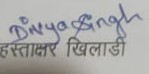 Divya Singh
हस्ताक्षर खिलाडी